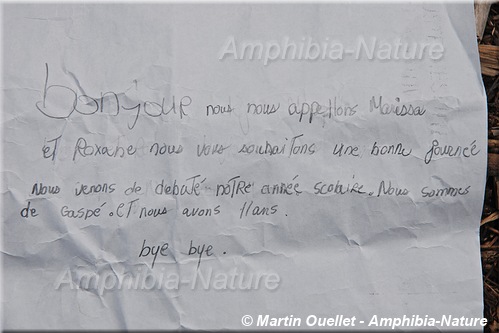 Amphibia-Nature
bonjour nous nous appellons Marissa
et Roxane nous vous souhaitons une bonne journée
Nous venons de debuté nôtre année scolaire. Nous sommes
de Gaspé. et nous avons 11ans.
bye bye.
Amphibia-Nature
© Martin Ouellet - Amphibia-Nature